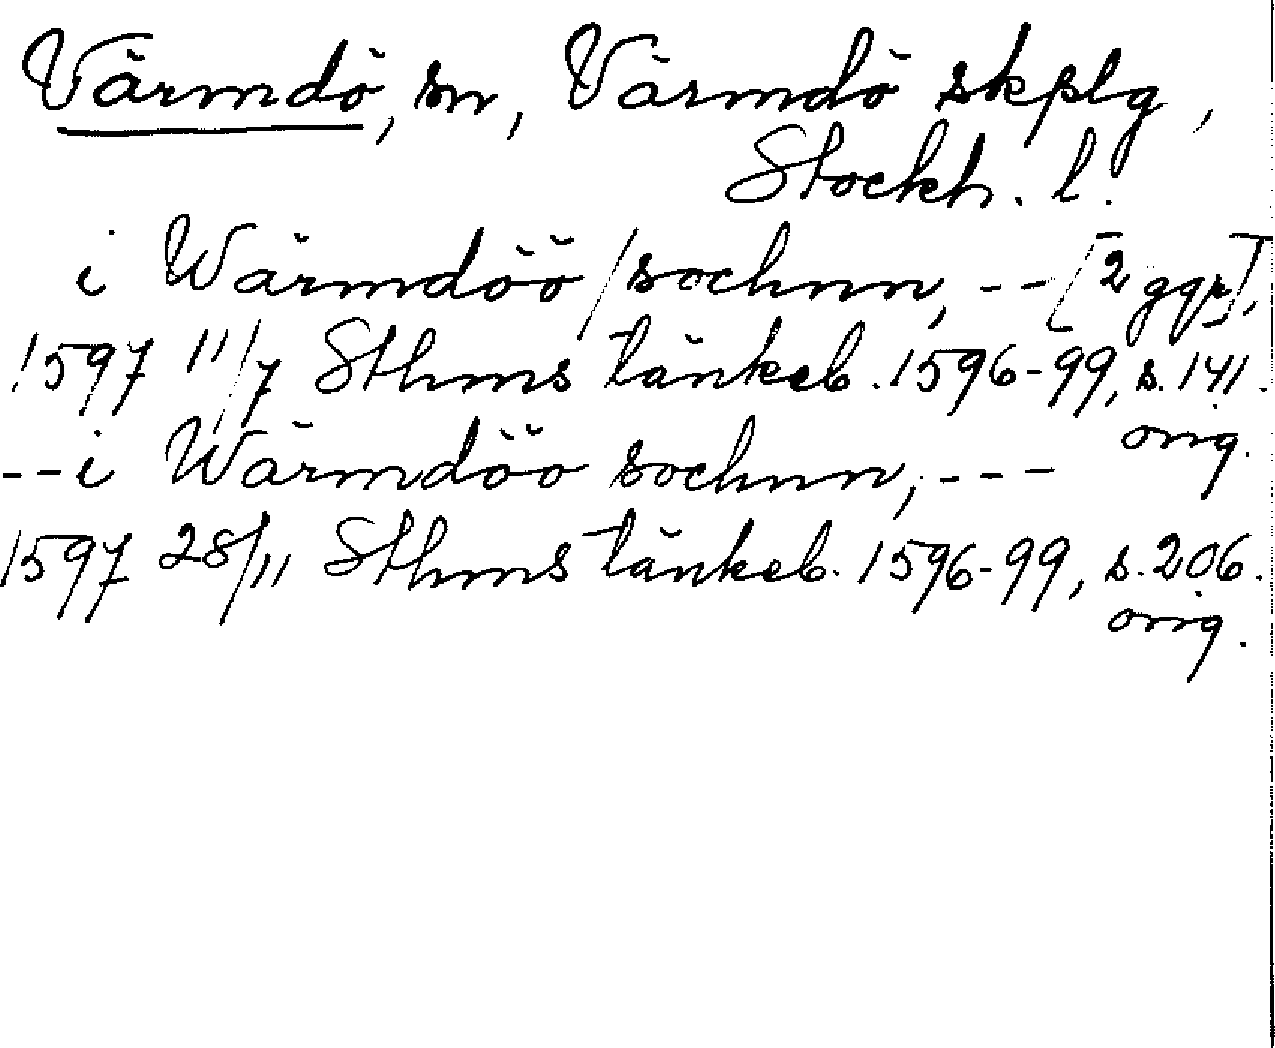 Värmdö, sn, Värmdö skplg,
Stockh. l.
i Wärmdöö / sochnn, -- [2 ggr],
1597 11/7 Sthms tänkeb. 1596-99, s. 141.
orig.
-- i Wärmdöö sochnn, ---
1597 28/11 Sthms tänkeb. 1596-99, s. 206.
orig.